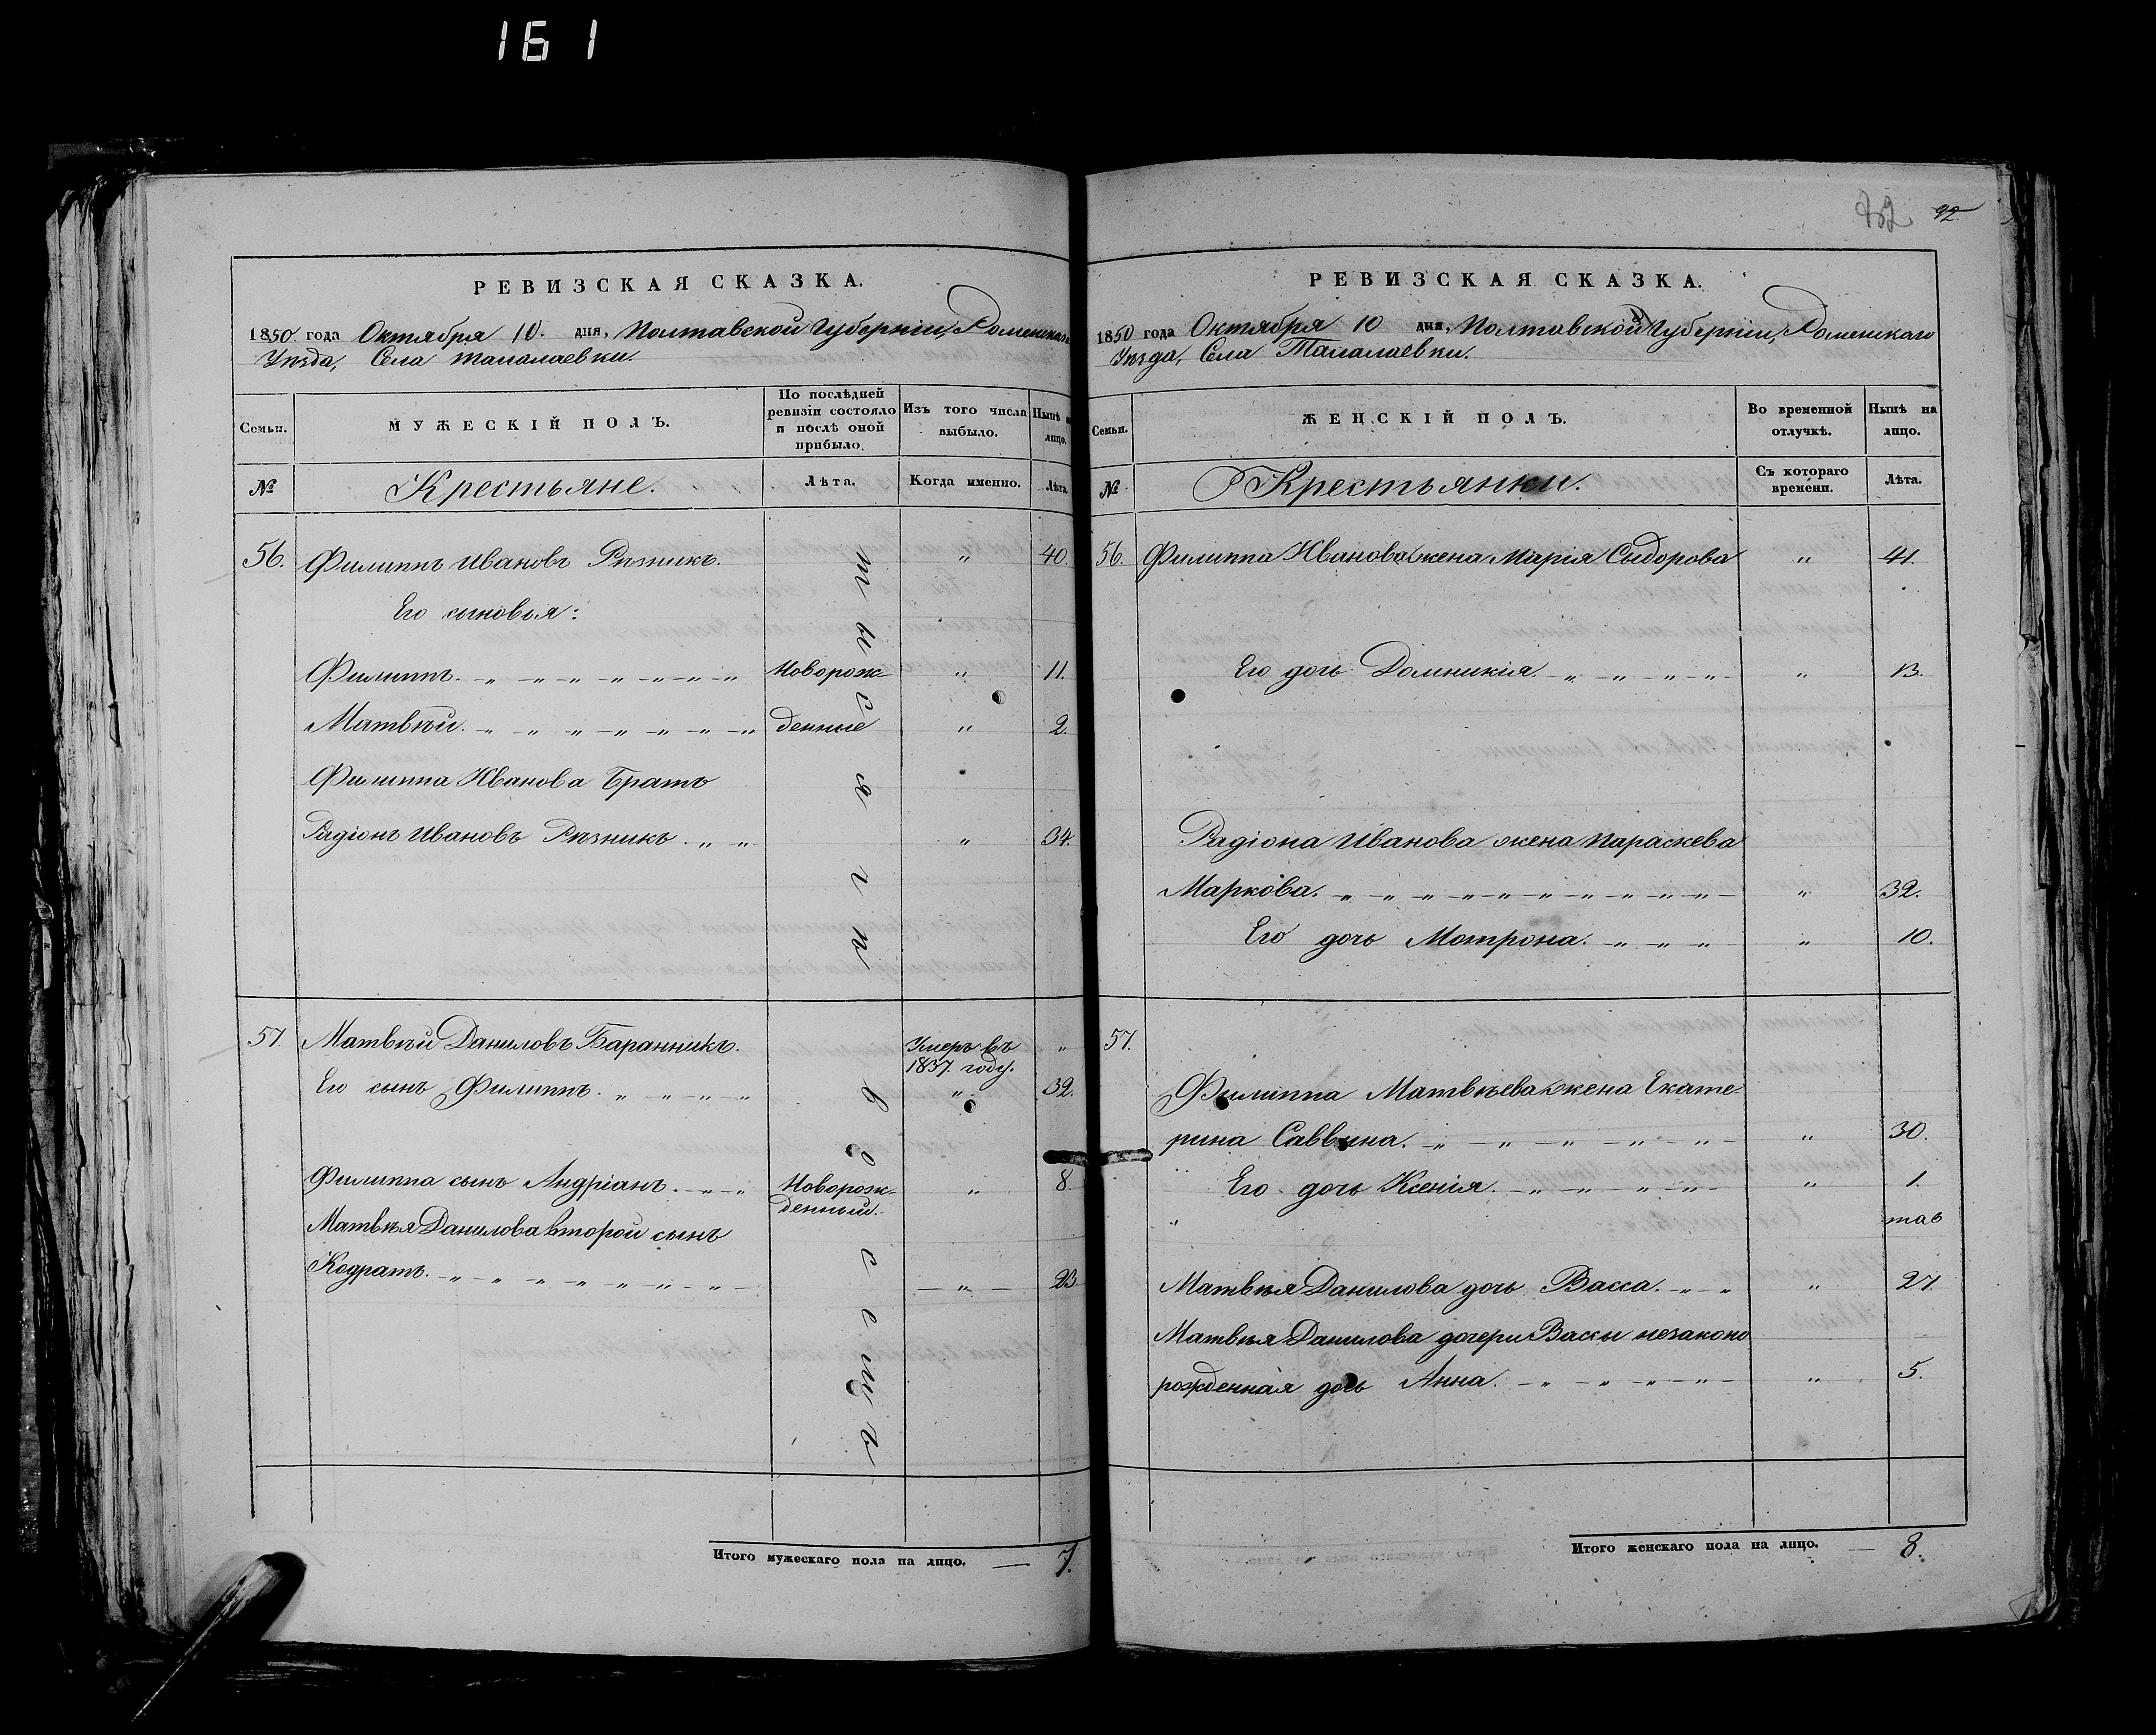 161
82 92.
РЕВИЗСКАЯ СКАЗКА.
1850 года Октября 10. дня, Полтавской Губерніи, Роменскаго
Уѣзда, Села Талалаевки.
Семьи.
МУЖЕСКІЙ ПОЛЪ.
По послѣдней ревизіи состояло и послѣ оной прибыло.
Изъ того числа выбыло.
Нынѣ на лицо.
№
Крестьяне.
Лѣта.
Когда именно.
Лѣта.
56. Филиппъ Ивановъ Рѣзникъ. " 40.
Его сыновья:
Филиппъ. Новорож- " 11.
Матвѣй. денные " 2.
Филиппа Иванова Братъ
Радіонъ Ивановъ Рѣзникъ. " 34.
57. Матвѣй Даниловъ Баранникъ. Умеръ въ "
1837. году.
Его сынъ Филиппъ. " 32.
Филиппа сынъ Андріанъ. Новорож- " 8.
денный.
Матвѣя Данилова второй сынъ
Кодратъ. " 23.
Итого мужескаго пола на лицо. — 7.
РЕВИЗСКАЯ СКАЗКА.
1850 года Октября 10 дня, Полтавской Губерніи, Роменскаго
Уѣзда, Села Талалаевки.
Семьи.
ЖЕНСКІЙ ПОЛЪ.
Во временной отлучкѣ.
Нынѣ на лицо.
№
Крестьянки.
Съ котораго времени.
Лѣта.
56. Филиппа Иванова жена Марія Сыдорова " 41.
Его дочь Домникія. " 13.
Радіона Иванова жена Параскева
Маркова. " 32.
Его дочь Мотрона. " 10.
57.
Филиппа Матвѣева жена Екате-
рина Саввина. " 30.
Его дочь Ксенія. " 1.
Матвѣя Данилова дочь Васса. " 27.
Матвѣя Данилова дочери Вассы незаконо
рожденная дочь Анна. " 5.
Итого женскаго пола на лицо. — 8.